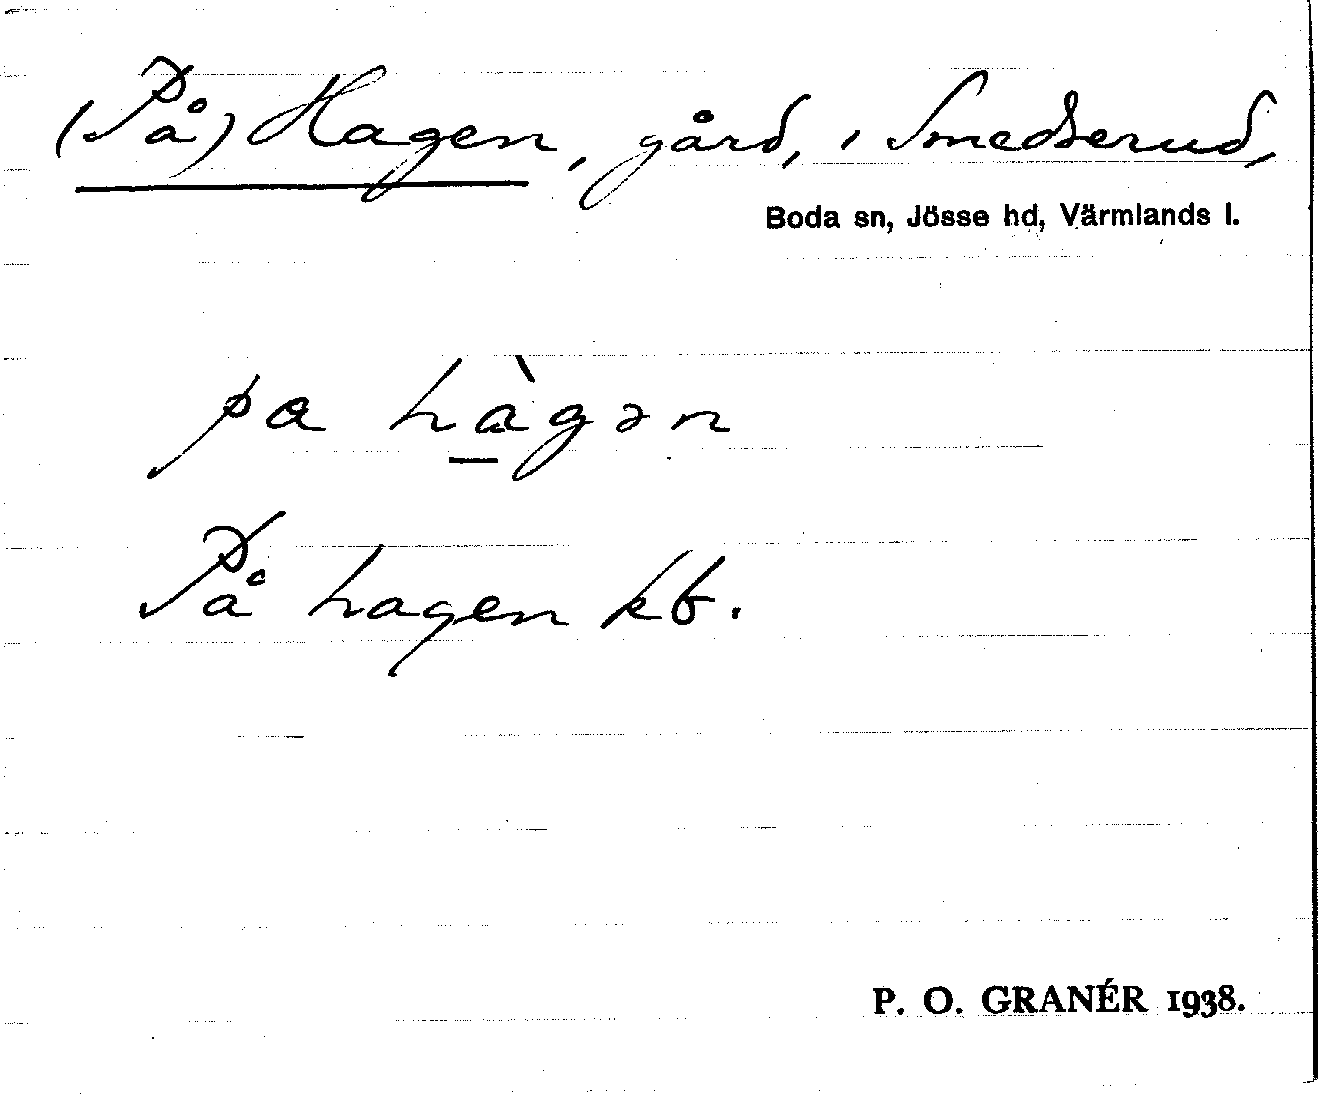 (På) Hagen, gård, i Smedserud,
Boda sn, Jösse hd, Värmlands l.
pa hàgən
På hagen kb.
P. O. GRANÉR 1938.